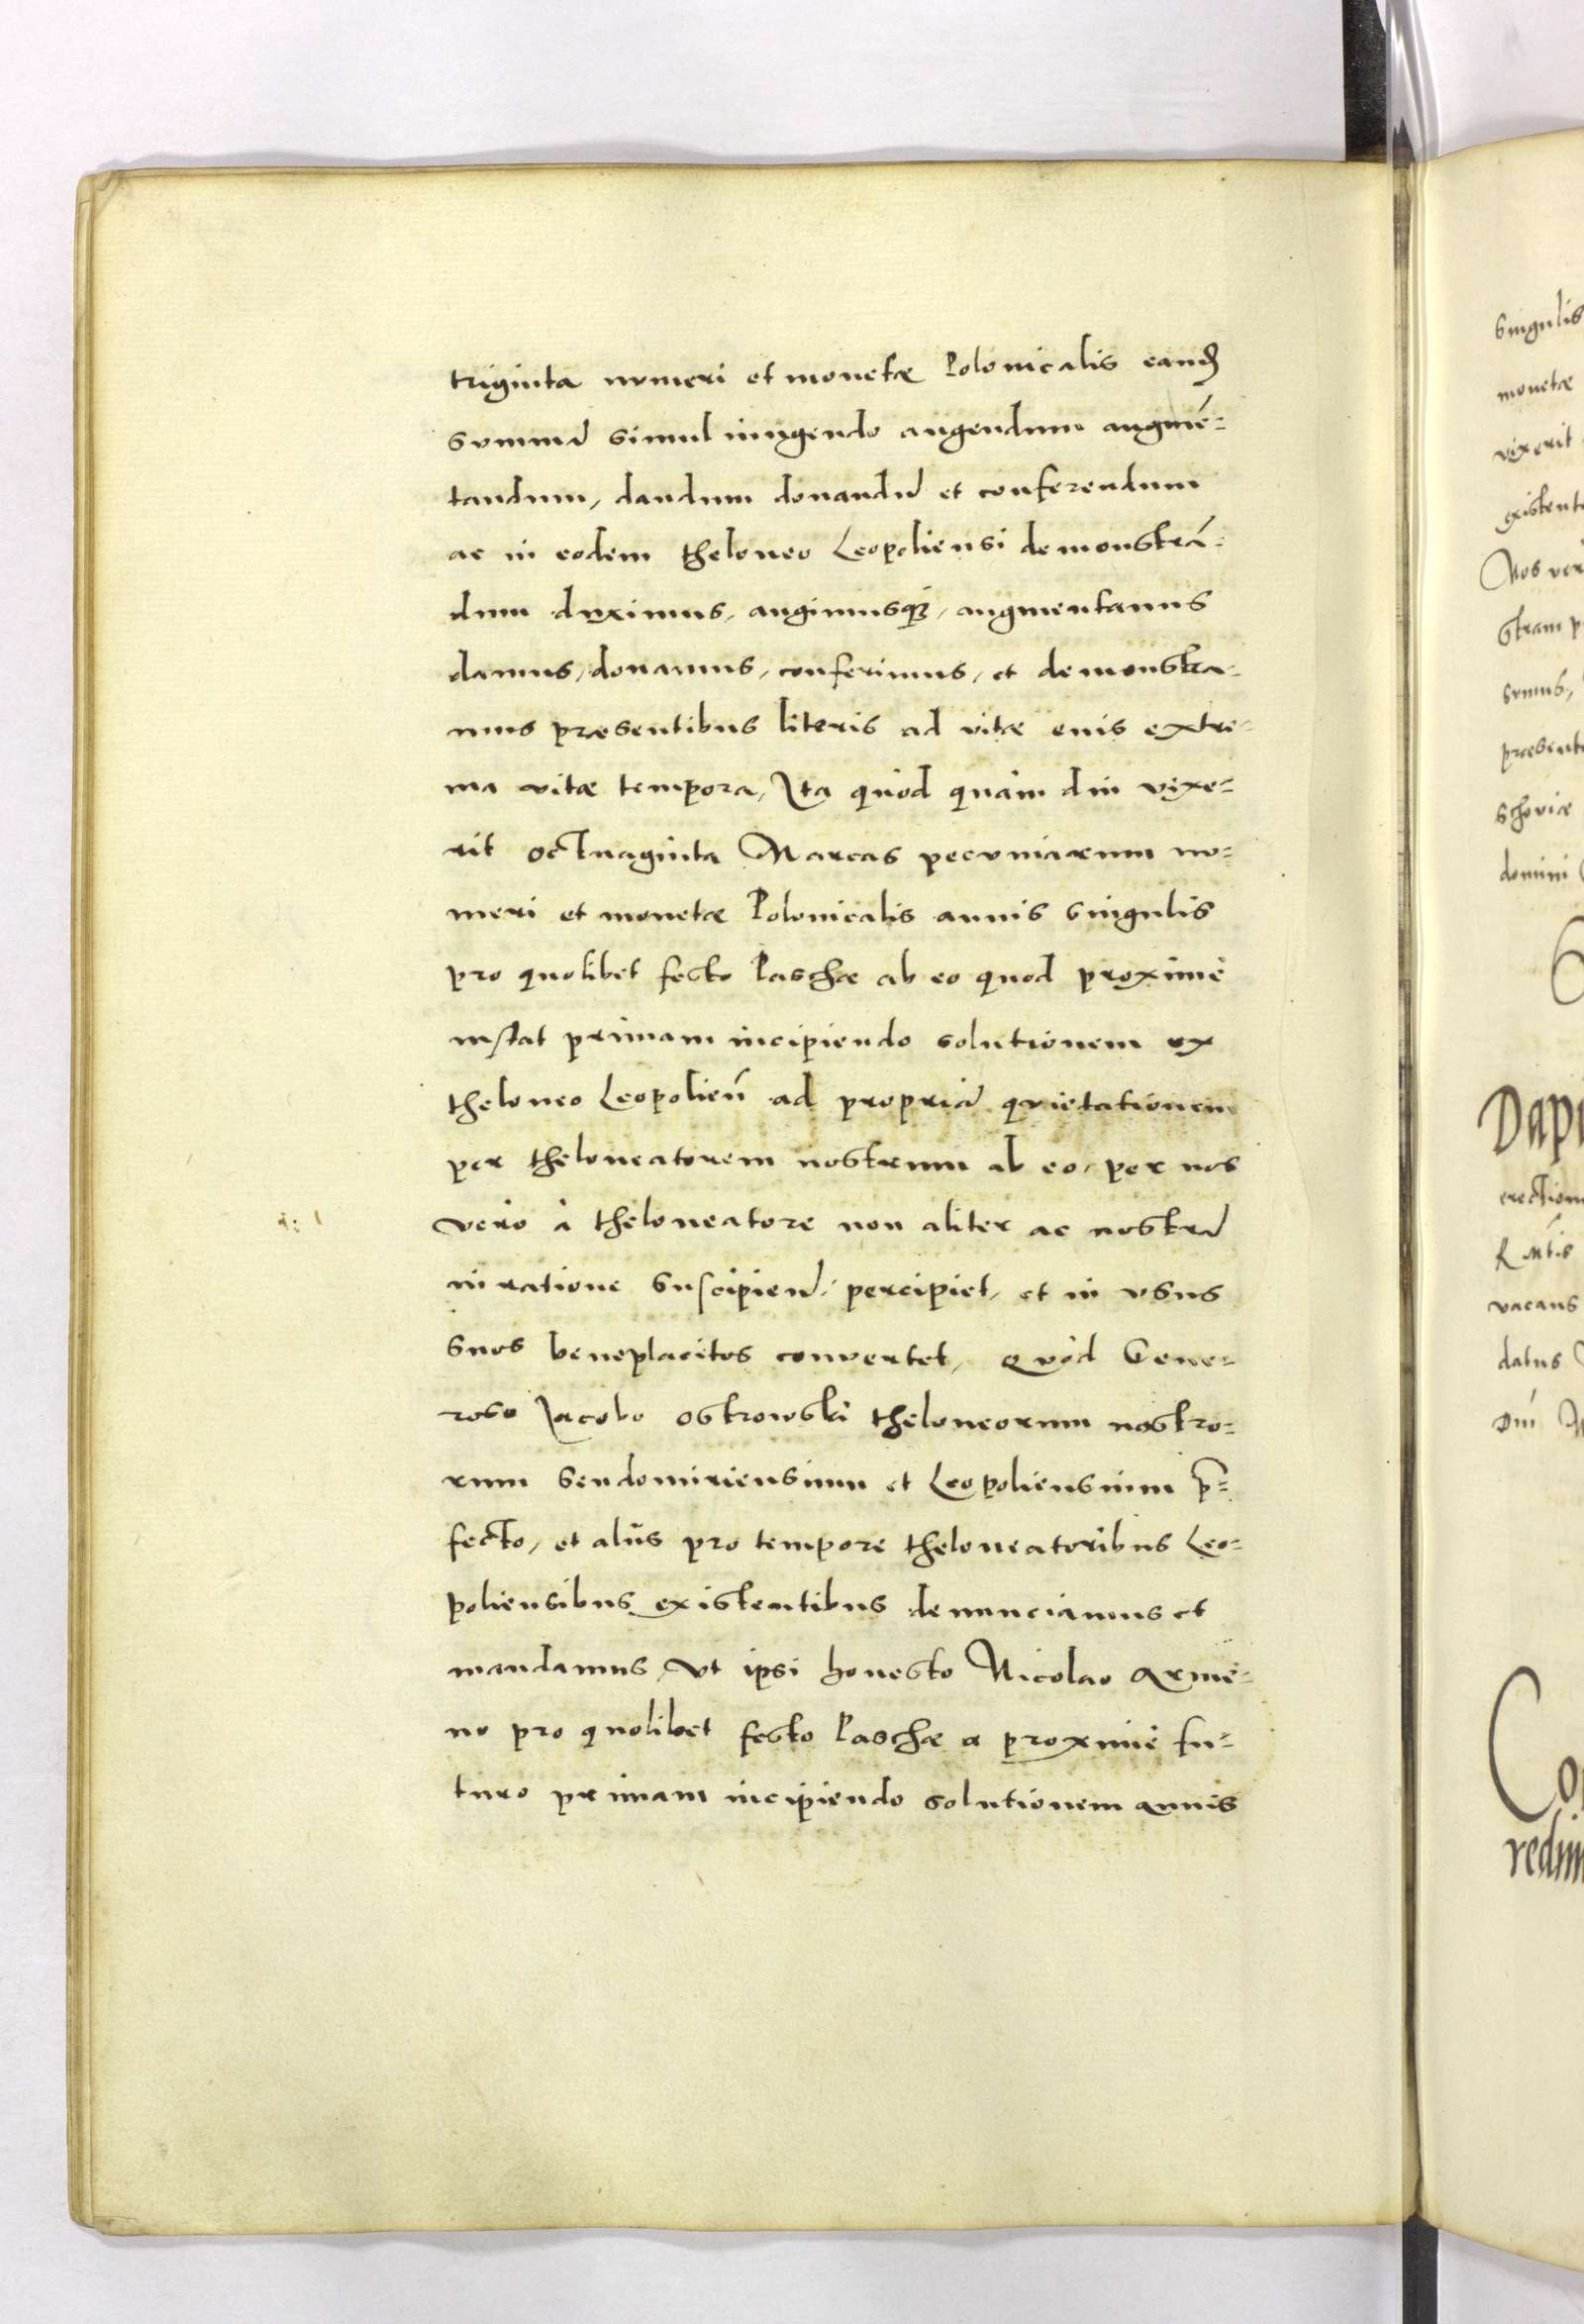 triginta numeri et monetæ Polonicalis eand
summã simul iungendo augendum augmē-
tandum, dandum donandũ et conferendum
ac in eodem theloneo Leopoliensi demonstrã-
dum duximus, augimusq́; augmentamus
damus, donamus, conferimus, et demonstra-
mus præsentibus literis ad vitæ euis extre-
ma vitæ tempora, Ita quòd quàm diu vixe-
rit octuaginta Marcas pecuniarum nu-
meri et monetæ Polonicalis annis singulis
pro quolibet festo Paschæ ab eo quod proximè
instat primam incipiendo solutionem ex
theloneo Leopolieñ ad propriã quietationem
per theloneatorem nostrum ab eo, per nos
verò à theloneatore non aliter ac nostrã
in ratione suscipiend. percipiet, et in usus
suos beneplacitos convertet, Quòd Gene-
roso Jacobo Ostrowski theloneorum nostro-
rum Sendomiriensium et Leopoliensium p̃-
fecto, et alijs pro tempore theloneatoribus Leo-
poliensibus existentibus denunciamus et
mandamus, Ut ipsi honesto Nicolao Arme-
no pro quolibet festo Paschæ a proximè fu-
turo primam incipiendo solutionem annis
singulis
monetæ
vixerit
existent
Nos ver
stram p
sumus,
præsent
schoviæ
domini
Dapi
erection
R Mtis
vacans
datus
Dñi
Con
redim